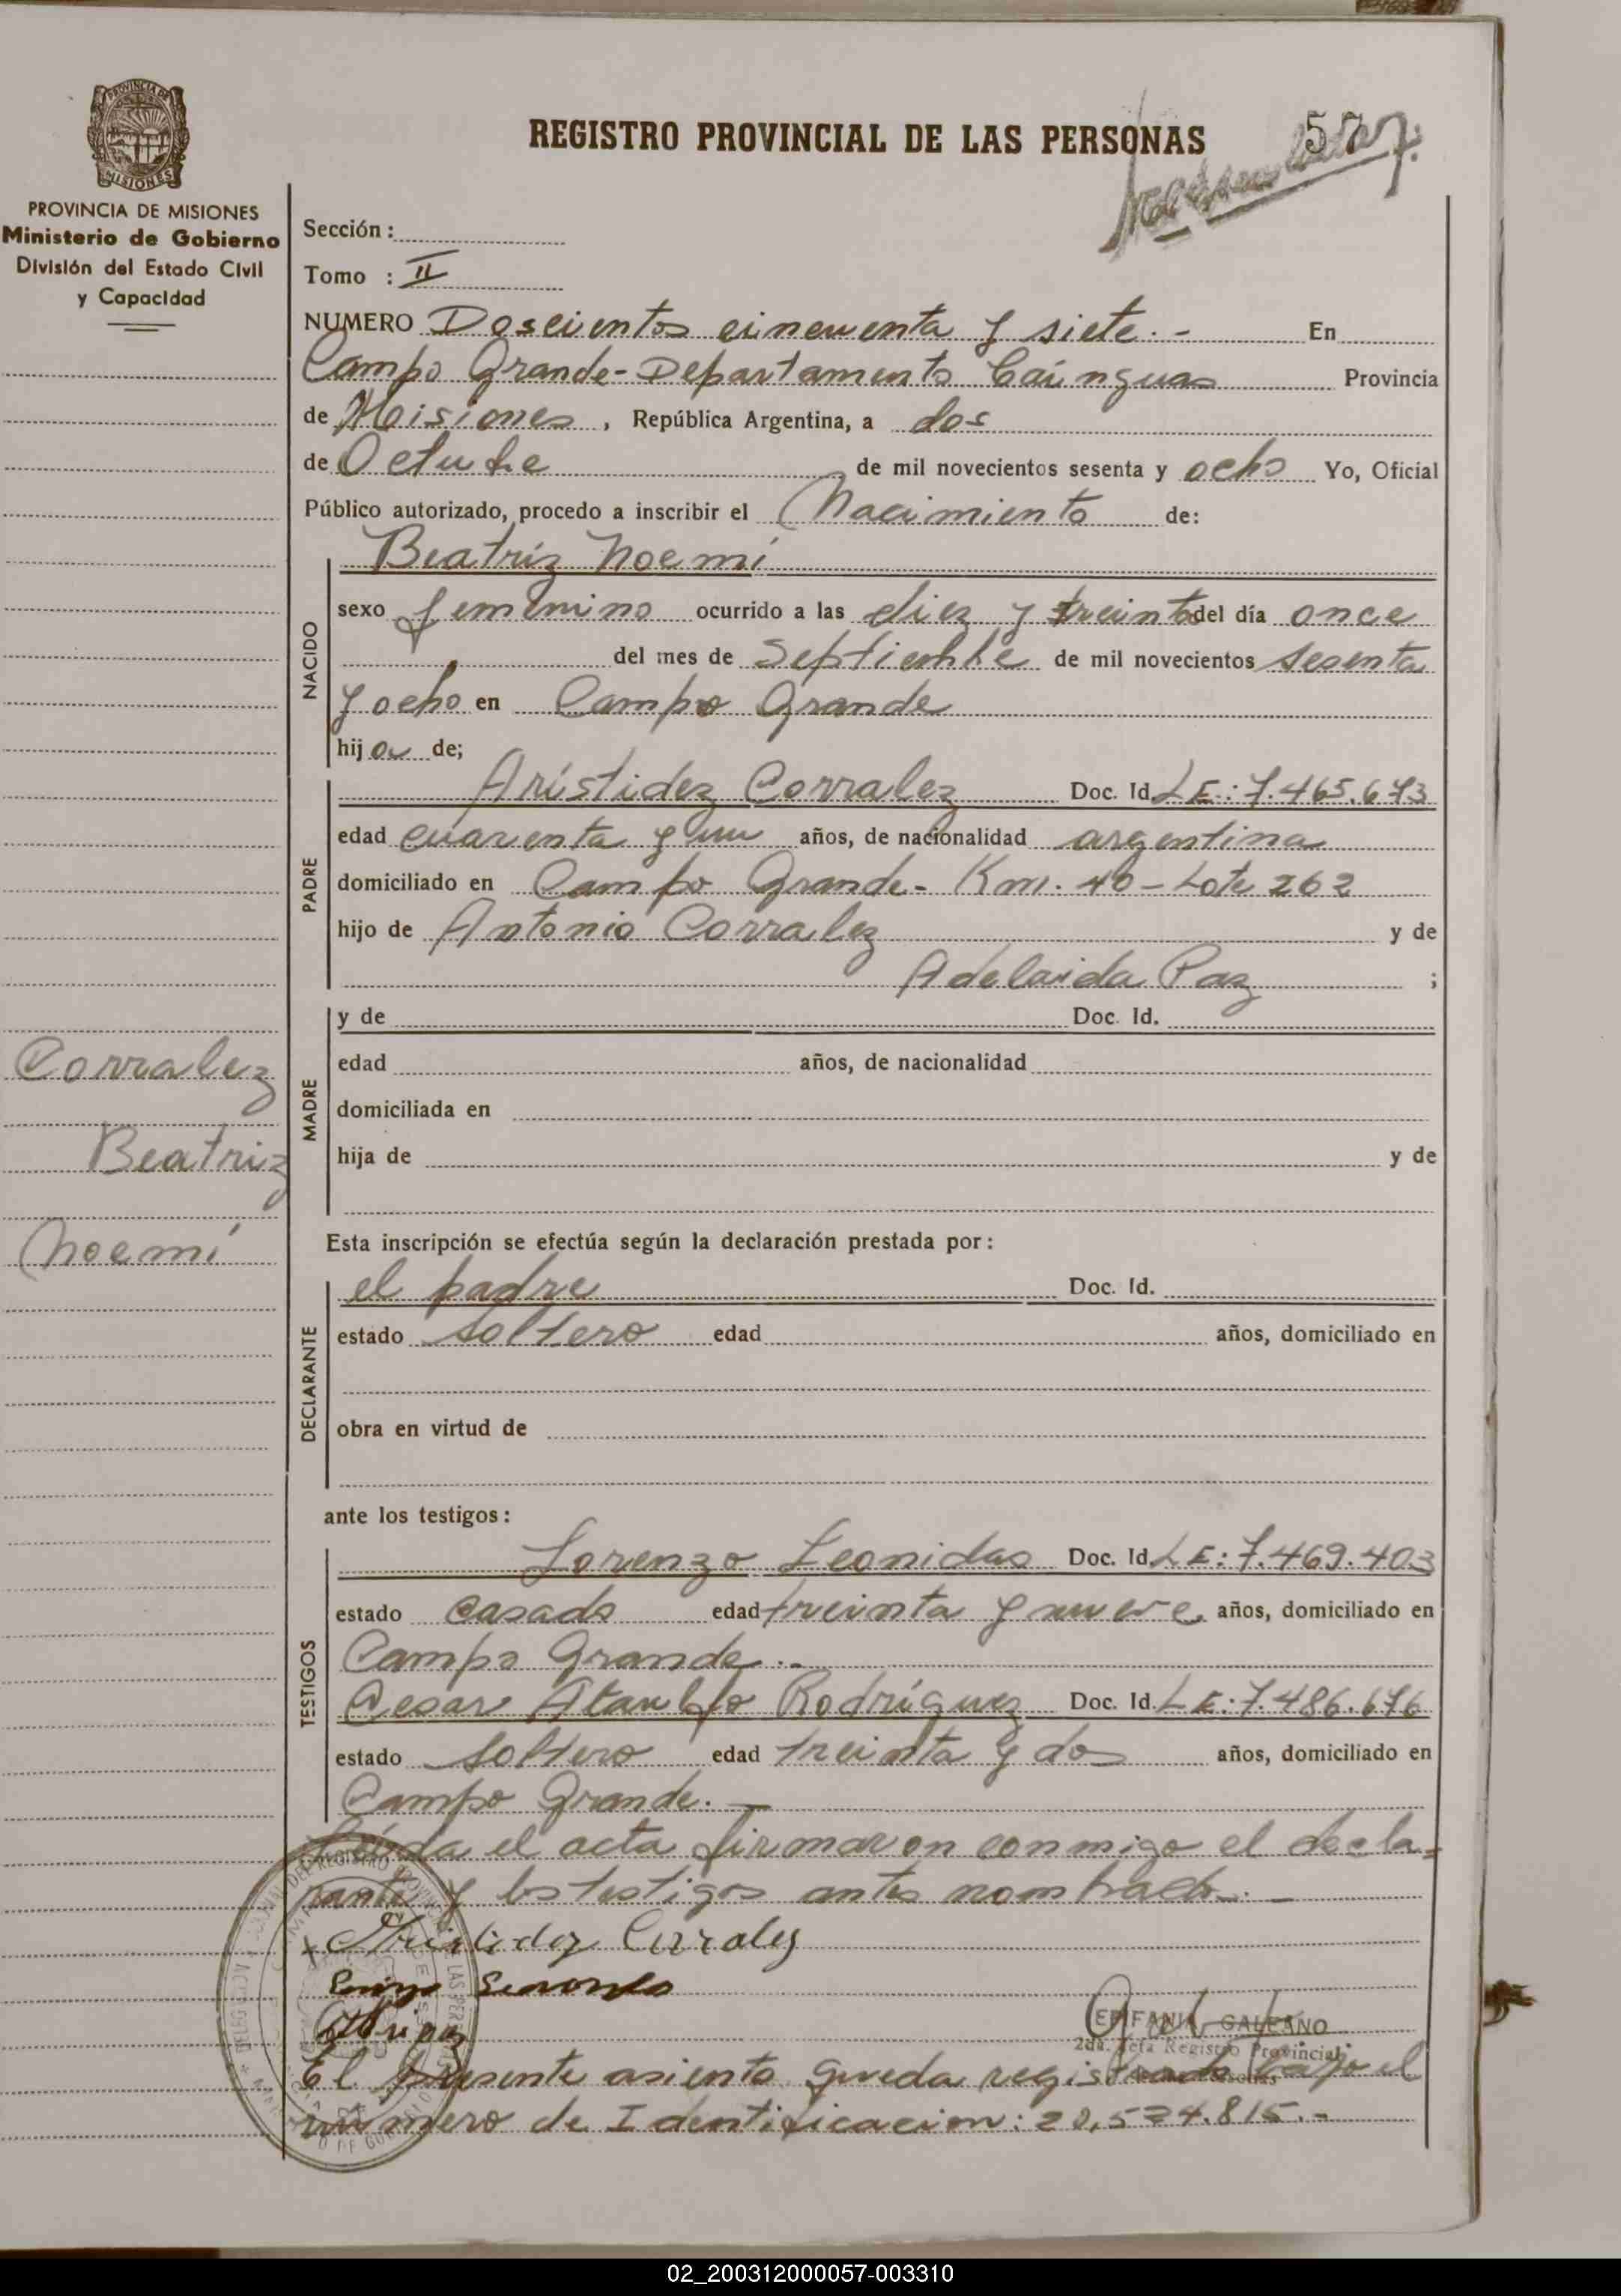 PROVINCIA DE
MISIONES
PROVINCIA DE MISIONES
Ministerio de Gobierno
División del Estado Civil
y Capacidad
REGISTRO PROVINCIAL DE LAS PERSONAS 57
Sección :
Tomo : II
NUMERO Doscientos cincuenta y siete.- En
Campo Grande - Departamento Cainguas Provincia
de Misiones , República Argentina, a dos
de Octubre de mil novecientos sesenta y ocho Yo, Oficial
Público autorizado, procedo a inscribir el Nacimiento de:
Beatriz Noemí
NACIDO
sexo femenino ocurrido a las diez y treinta del día once
del mes de Septiembre de mil novecientos sesenta
y ocho en Campo Grande
hija de;
PADRE
Arístidez Corralez Doc. Id. LE: 7.465.673
edad cuarenta y un años, de nacionalidad argentina
domiciliado en Campo Grande - Km. 40 - Lote 262
hijo de Antonio Corralez y de
Adelaida Paz ;
MADRE
y de Doc. Id.
edad años, de nacionalidad
domiciliada en
hija de y de
Corralez
Beatriz
Noemí
Esta inscripción se efectúa según la declaración prestada por :
DECLARANTE
el padre Doc. Id.
estado soltero edad años, domiciliado en
obra en virtud de
ante los testigos :
TESTIGOS
Lorenzo Leonidas Doc. Id. LE: 7.469.403
estado casado edad treinta y nueve años, domiciliado en
Campo Grande.-
Cesar Rodríguez Doc. Id. LE: 7.486.676
estado soltero edad treinta y dos años, domiciliado en
Campo Grande.-
Leída el acta firmaron conmigo el decla-
rante y los testigos antes nombrados.-
x Aristidez Corralez
EPIFANIA GALEANO
2da. Jefa Registro Provincial
El presente asiento queda registrado bajo el
número de Identificacion: 20.524.815.-
02_200312000057-003310